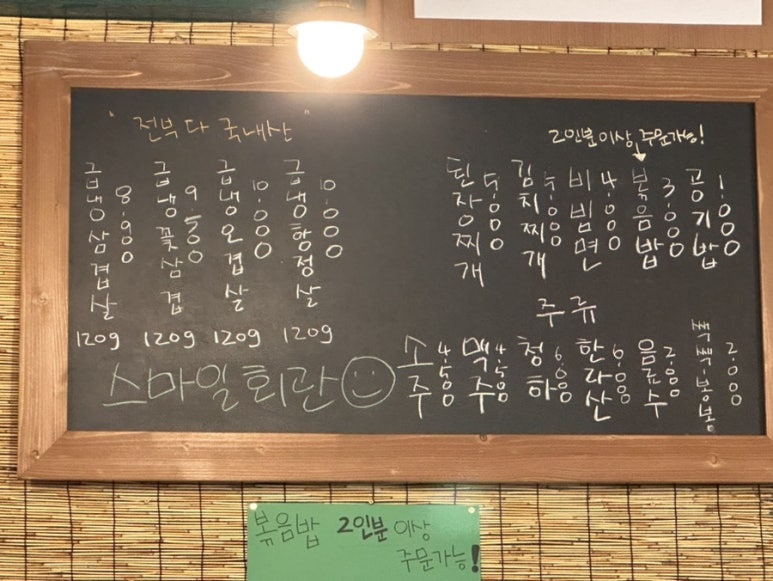 " 전부 다 국내산 "
급냉삼겹살 8.900
120g
급냉꽃삼겹 9.500
120g
급냉오겹살 10.000
120g
급냉항정살 10.000
120g
스마일회관
2인분 이상 주문가능!
된장찌개 5.000
김치찌개 5.000
비빔면 4.000
볶음밥 3.000
공기밥 1.000
주류
소주 4.500
맥주 4.500
청하 6.000
한라산 6.000
음료수 2.000
쌕쌕.봉봉 2.000
볶음밥 2인분 이상
주문가능!